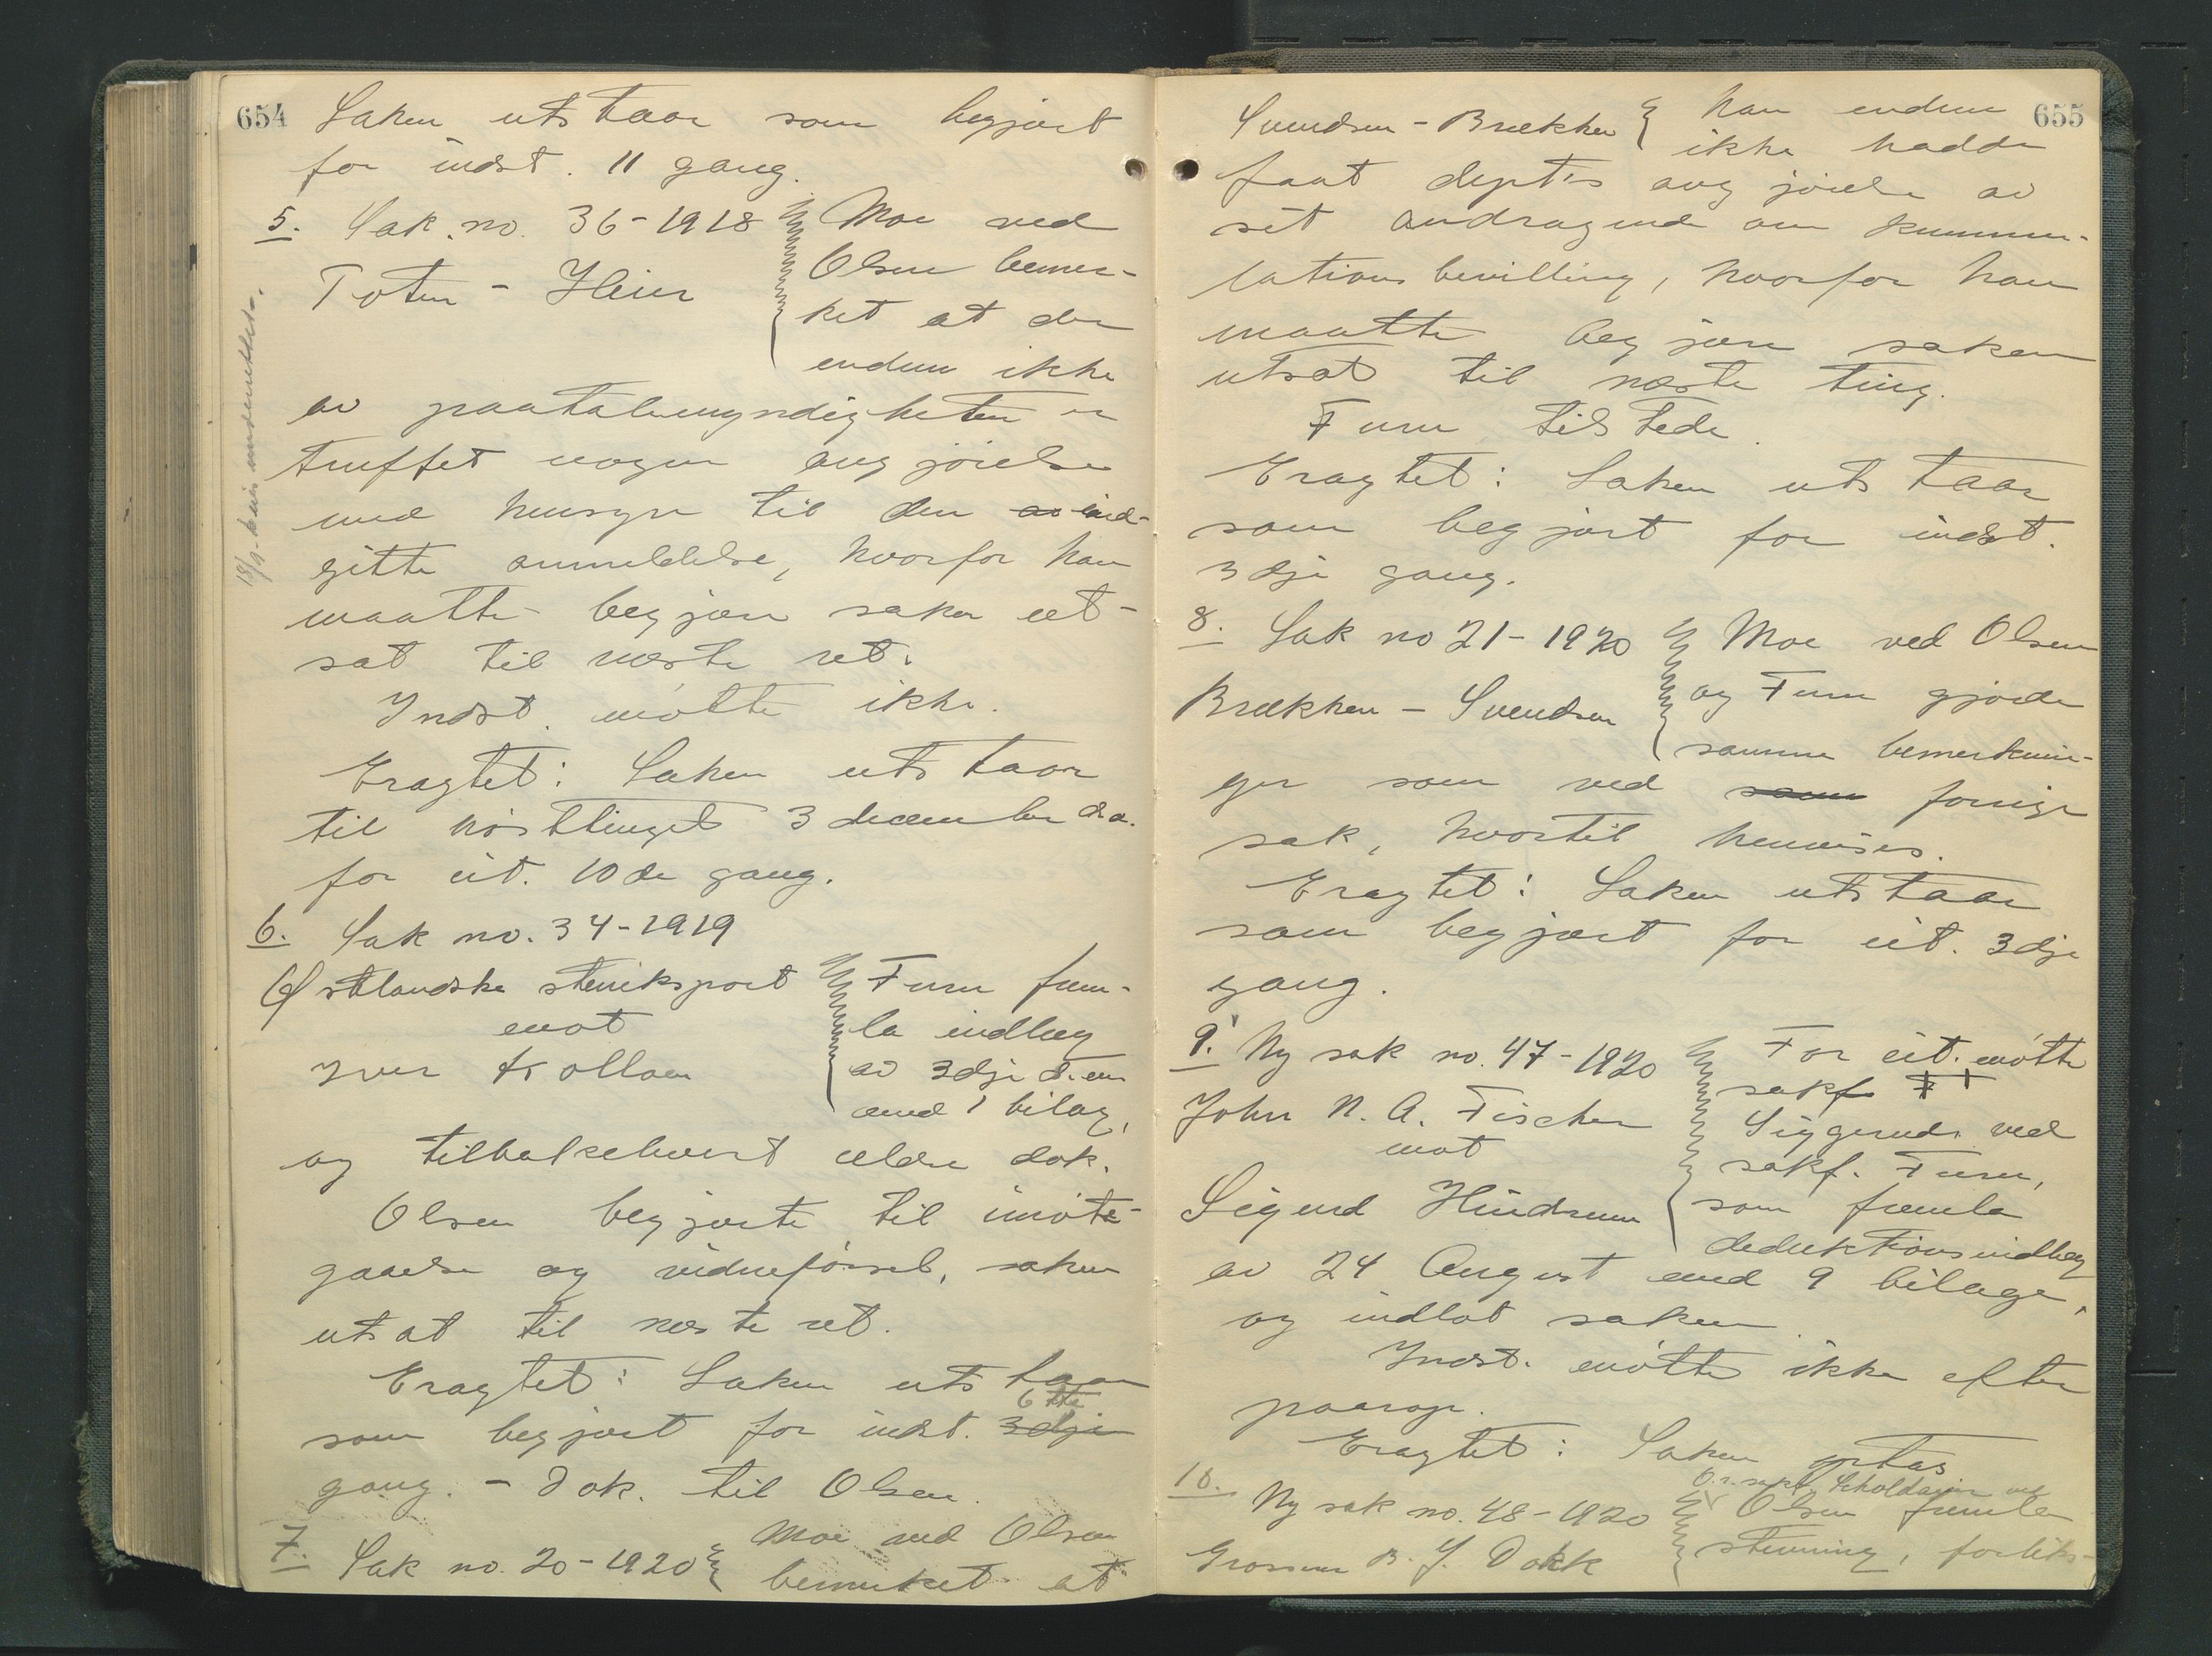 654
Saken utstaar som begjært
for indst. 11 gang.
5. Sak no. 36-1918
Toten - Heier
Moe ved
Olsen bemer-
ket at der
endnu ikke
av paatalemyndigheten er
truffet nogen avgjørelse
med hensyn til den av ind-
gitte anmeldelse, hvorfor han
maatte begjære saken ut-
sat til næste ret.
Indst. møtte ikke.
Eragtet: Saken utstaar
til høsttinget 3 december d.a.
for cit. 10de gang.
6. Sak no. 34-1919
Østlandske steneksport
mot
Iver Kollan
Furu frem-
la indlæg
av 3dje d.m.
med 1 bilag,
og tilbakelevert ældre dok.
Olsen begjærte til imøte-
gaaelse og vidneførsel, saken
utsat til næste ret.
Eragtet: Saken utstaar
som begjært for indst. 3dje 6tte
gang. - Dok. til Olsen.
7. Sak no. 20-1920
Moe ved Olsen
bemerket at
655
Svendsen - Brækken
han endnu
ikke hadde
faat dept's avgjørelse av
sit andragende om kummu-
lationsbevilling, hvorfor han
maatte begjære saken
utsat til næste ting.
Furu tilstede.
Eragtet: Saken utstaar
som begjært for indst.
3dje gang.
8. Sak no 21-1920
Brækken - Svendsen
Moe ved Olsen
og Furu gjorde
samme bemerknin-
ger som ved som forrige
sak, hvortil henvises.
Eragtet: Saken utstaar
som begjært for cit. 3dje
gang.
9. Ny sak no. 47-1920
John N. A. Fischer
mot
Sigurd Hindrum
For cit. møtte
sakf.
Siggerud ved
sakf. Furu,
som fremla
deduktionsindlæg
av 24 August med 9 bilage,
og indlot saken.
Indst. møtte ikke efter
paarop.
Eragtet: Saken optas
10. Ny sak no. 48-1920
Grosserer B. J. Dokk
O.r.sakf. ved
Olsen fremla
stevning, forliks-